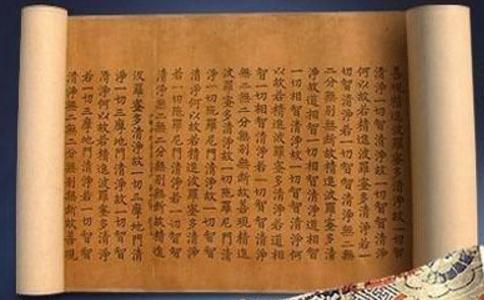 善現精進波羅蜜多清淨故一切智
清淨一切智清淨故一切智智清淨
何以故若精進波羅蜜多清淨若一
切智清淨若一切智智清淨無二無
二分無別無斷故善現精進波羅蜜多清
淨故道相智一切相智清淨道相智
一切相智清淨故一切智智清淨何
以故若精進波羅蜜多清淨若道相
智一切相智清淨若一切智智清淨
無二無二分無別無斷故善現精進
波羅蜜多清淨故一切陀羅尼門清
淨一切陀羅尼門清淨故一切智智
清淨何以故若精進波羅蜜多清淨
若一切陀羅尼門清淨若一切智智
清淨無二無二分無別無斷故善現精進
波羅蜜多清淨故一切三摩地門清
淨一切三摩地門清淨故一切智智
清淨何以故若精進波羅蜜多清淨
若一切三摩地門清淨若一切智智
清淨無二無二分無別無斷故善現